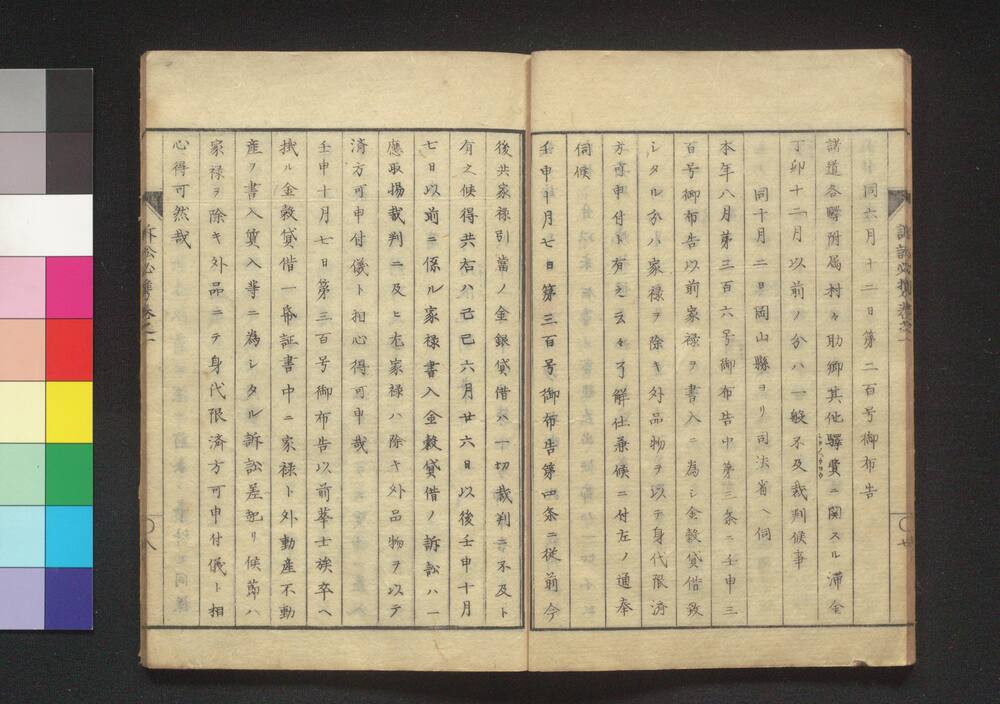 同六月十二日第二百号御布告
諸道各驛附属村々助郷其他驛費ニ関スル滞金
丁卯十二月以前ノ分ハ一般不及裁判候事
同十月二日岡山縣ヨリ司法省ヘ伺
本年八月第三百六号御布告中第三条ニ壬申三
百号御布告以前家禄ヲ書入ニ為シ金穀貸借致
シタル分ハ家禄ヲ除キ外品物ヲ以テ身代限済
方可申付ト有之云々了解仕兼候ニ付左ノ通奉
伺候
壬申十月七日第三百号御布告第四条ニ従前今
後共家禄引當ノ金銀貸借ハ一切裁判ニ不及ト
有之候得共右ハ己巳六月廿六日以後壬申十月
七日以前ニ係ル家禄書入金穀貸借ノ訴訟ハ一
應取揚裁判ニ及ヒ尤家禄ハ除キ外品物ヲ以テ
済方可申付儀ト相心得可申哉
壬申十月七日第三百号御布告以前華士族卒ヘ
拭ル金穀貸借一帋証書中ニ家禄ト外動産不動
産ヲ書入質入等ニ為シタル訴訟差起リ候節ハ
家禄ヲ除キ外品ニテ身代限済方可申付儀ト相
心得可然哉
訴訟必携巻之一
〇八